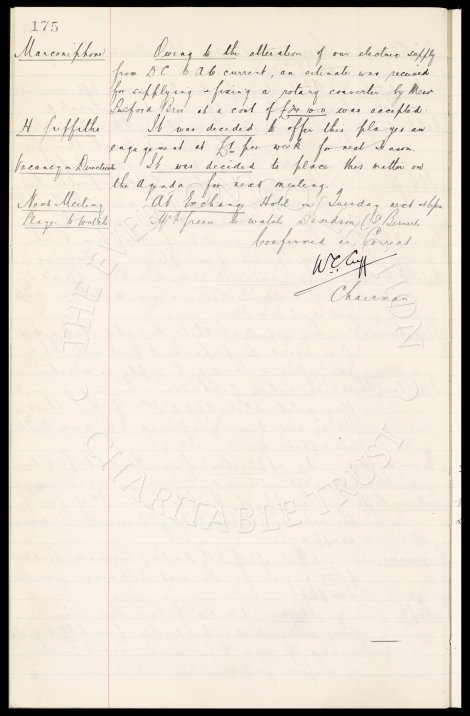 175
Marconiphone Owing to the alteration of our electric supply
from D.C. to A.C. current, an estimate was received
for supplying & fixing a rotary converter by Messrs
Bros at a cost of was accepted.
H Griffiths It was decided to offer this player an
engagement at £1 per week for next season.
Vacancy in Directorate It was decided to place this matter on
the Agenda for next meeting.
Next Meeting At Exchange Hotel on Tuesday next at 6pm
Player to Watch Mr Green to watch Davidson
Confirmed as Correct
W. C. Cuff
Chairman
THE EVE
TION
CHARITABLE TRUST